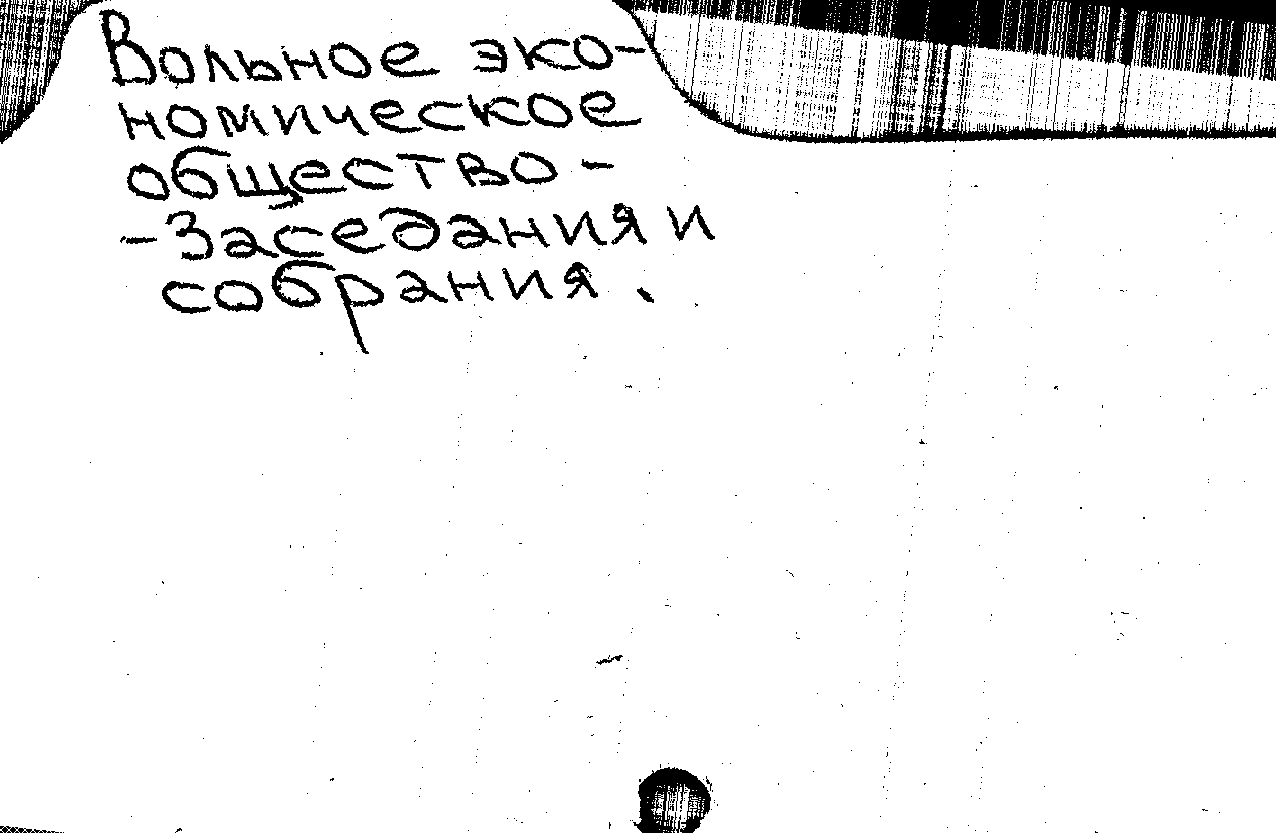 Вольное эко-
номическое
общество -
- Заседания и
собрания.